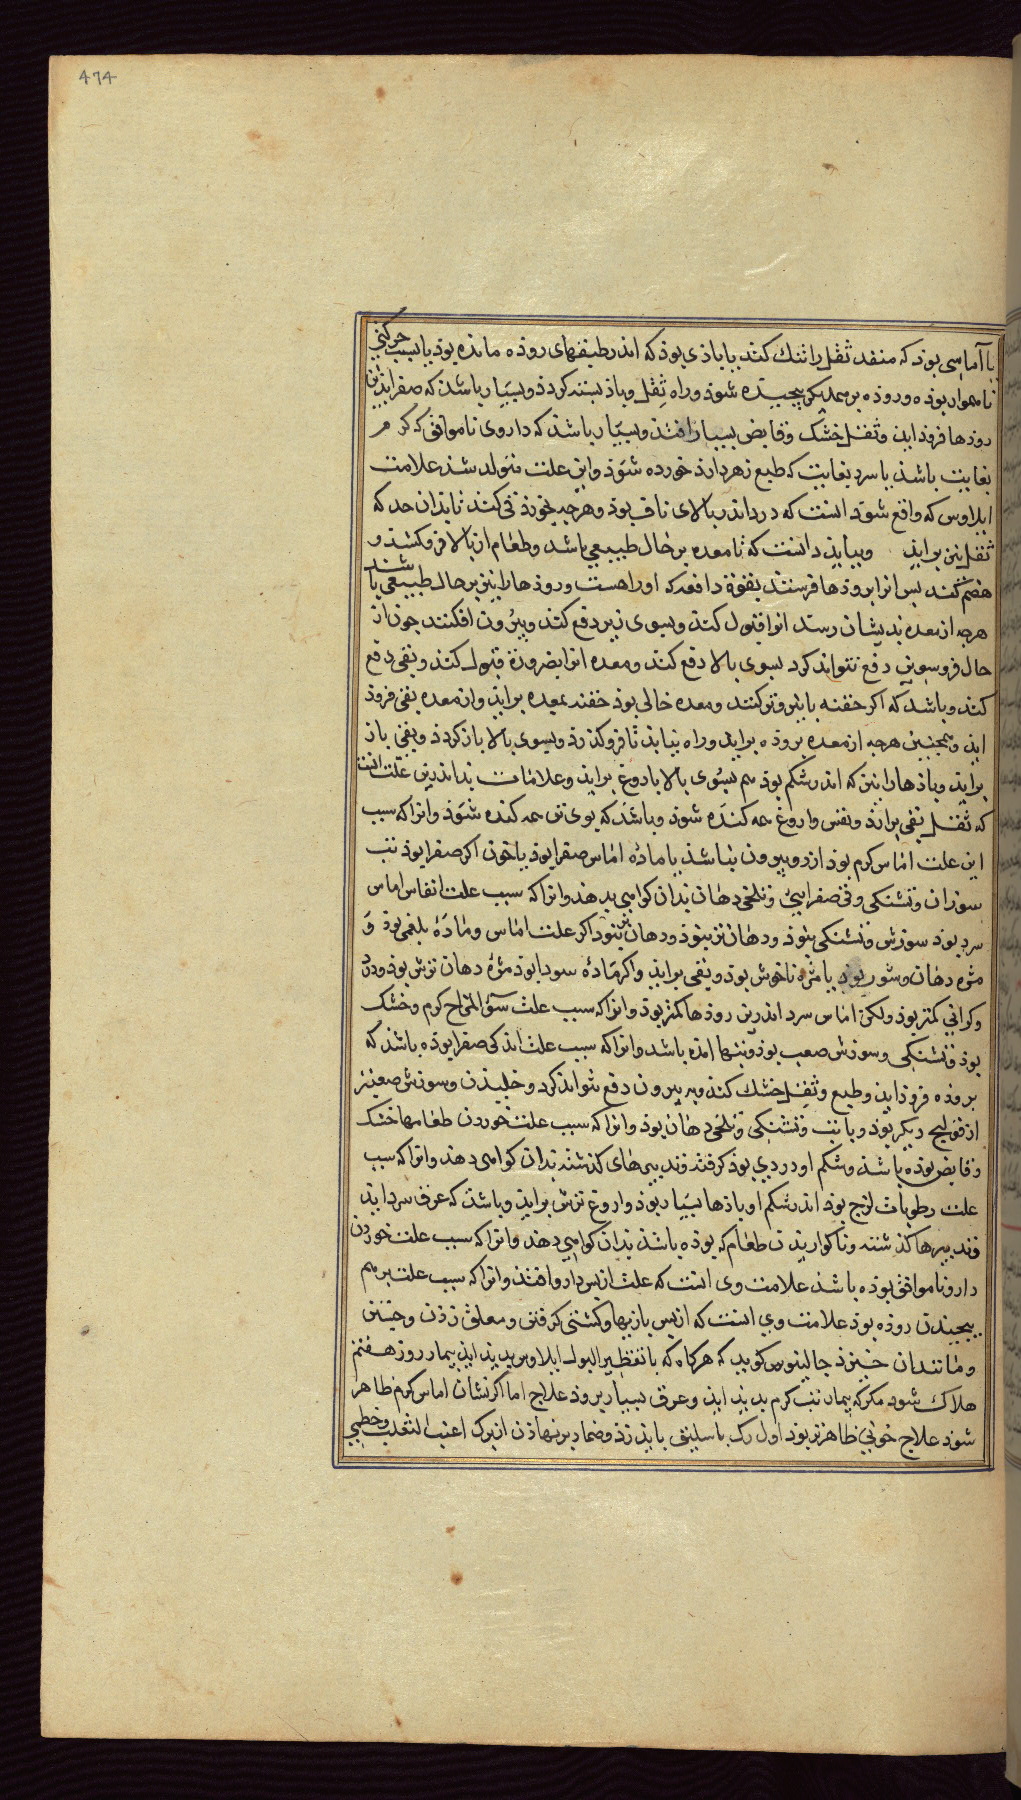 474
یا آماسی بوذ که منفذ ثفل را تنک کند یا باذی بوذ که اندر طبقهای روذه مانده بوذ یا بسبب حرکتی
ناهموار بوذه و روذه بر یکدیکر بیجیده شوذ و راه ثفل و باذ بسته کردذ و بسیار باشذ که صفرا بدین
روذها فروذ ایذ و ثفل خشک و قابض بسیار افتذ و بسیار باشذ که داروی ناموافق که کرم
بغایت باشذ یا سرد بغایت که طبع زهر دارذ خورده شوذ و این علت متولد شذ علامت
ایلاوس که واقع شوذ انست که درد اندر بالای ناف بوذ و هرجه خورذ قی کند تا بدان حد که
ثفل نیز برایذ و ببایذ دانست که تا معده بر حال طبیعی باشد و طعام از بالا فرو کشذ و
هضم کند بس انرا بروذها فرستد بقوة دافعه که او راهست و روذها را نیز بر حال طبیعی باشند
هرجه از معده بدیشان رسد انرا قبول کند و بسوی زیر دفع کند و بیرون افکنند جون از
حال فروسوین دفع نتواند کرد بسوی بالا دفع کند و معده انرا بضرورة قبول کند و بقی دفع
کند و باشد که اکر حقنه یا بلیروتر کنند و معده خالی بوذ حقنه بمعده برایذ و از معده بقی فروذ
ایذ و همجنین هرجه از معده بروذه برایذ و راه نیابذ تا فرو کذرذ و بسوی بالا باز کردذ و بقی باز
برایذ و باذها را نیز که اندر شکم بوذ هم بسوی بالا باروغ برایذ و علامات بد اندرین علت انست
که ثفل بقی برایذ و نفس و اروغ همه کنده شوذ و باشذ که بوی تن همه کنده شوذ و انرا که سبب
این علت اماس کرم بوذ ازدو بیرون نباشذ یا ماده اماس صفرا بوذ یا خون اکر صفرا بوذ تب
سوزان و تشنکی و قی صفرایی و تلخی دهان بدان کواهی بدهذ و انرا که سبب علت انفاس اماس
سرد بوذ سوزش و تشنکی نبوذ و دهان نیز نبوذ اکر علت اماس و مادهٔ بلغمی بوذ و
مزه دهان و شور بوذ یا مزه ناخوش بوذ و بقی برایذ و اکر مادهٔ سودا بوذ مزهٔ دهان ترش بوذ و درد
و کرانی کمتر بوذ ولکن اماس سرد اندرین روذها کمتر بوذ و انرا که سبب علت سوٓ المزاج کرم و خشک
بوذ تشنکی و سوزش صعب بوذ و تبها امده باشد و انرا که سبب علت اندکی صفرا بوذه باشذ که
بروذه فروذ ایذ و طبع و ثفل خشک کند و بر بیرون دفع نتواند کرد و خلیذن و سوزش صعبتر
از قولنج دیکر بوذ و با تب و تشنکی و تلخی دهان بوذ و انرا که سبب علت خوردن طعامها خشک
و قابض بوذه باشذ و شکم او دردی بوذ کرفته و تدبیرهای کذشته بدان کواهی دهذ و انرا که سبب
علت رطوبات لزج بوذ اندر شکم او باذها بسیار بوذ و اروغ ترش برایذ و باشذ که عرق سرد ایذ
و تدبیرها کذشته و ناکواریدن طعام که بوذه باشذ بدان کواهی دهذ و انرا که سبب علت خوردن
دارو ناموافق بوذه باشذ علامت وی انست که علت از بس دارو افتذ و انرا که سبب علت برهم
بیجیدن روذه بوذ علامت وی انست که از بس بازیها و کشتی کرفتن و معلق زدن و جستن
و مانند ان خیزذ جالینوس کویذ که هرکاه که با تقطیر البول ایلاوس بدیذ ایذ بیمار روز هفتم
هلاک شود مکر که بیمار تب کرم بدیذ ایذ و عرق بسیار بروذ علاج اما اکر نشان اماس کرم ظاهر
شوذ علاج خونی ظاهرتر بوذ اول رک باسلیق بایذ زذ و ضماد برنهاذن از برک عنب الثعلب و خطمی